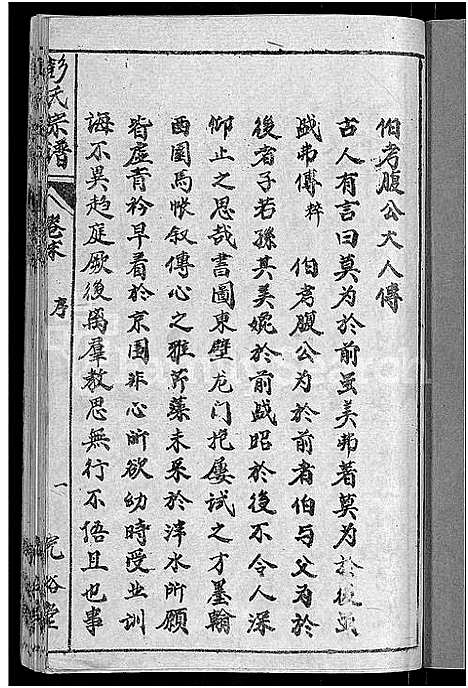 伯考腹公大人傳
古人有言曰莫为於前虽美弗著莫为於後虽
盛弗傳粹 伯考腹公为於前者伯与父为於
後者子若孫其美婉於前盛昭於後不令人深
仰止之思哉書圖東壁龙门抱屡试之才墨翰
西園馬帐叙傳心之雅芹藻未采於泮水所願
皆虛青衿早着於京園非心所欲幼時受业訓
诲不異趋庭厥後离羣教思無行不悟且也事
彭氏宗譜
卷末
序
一